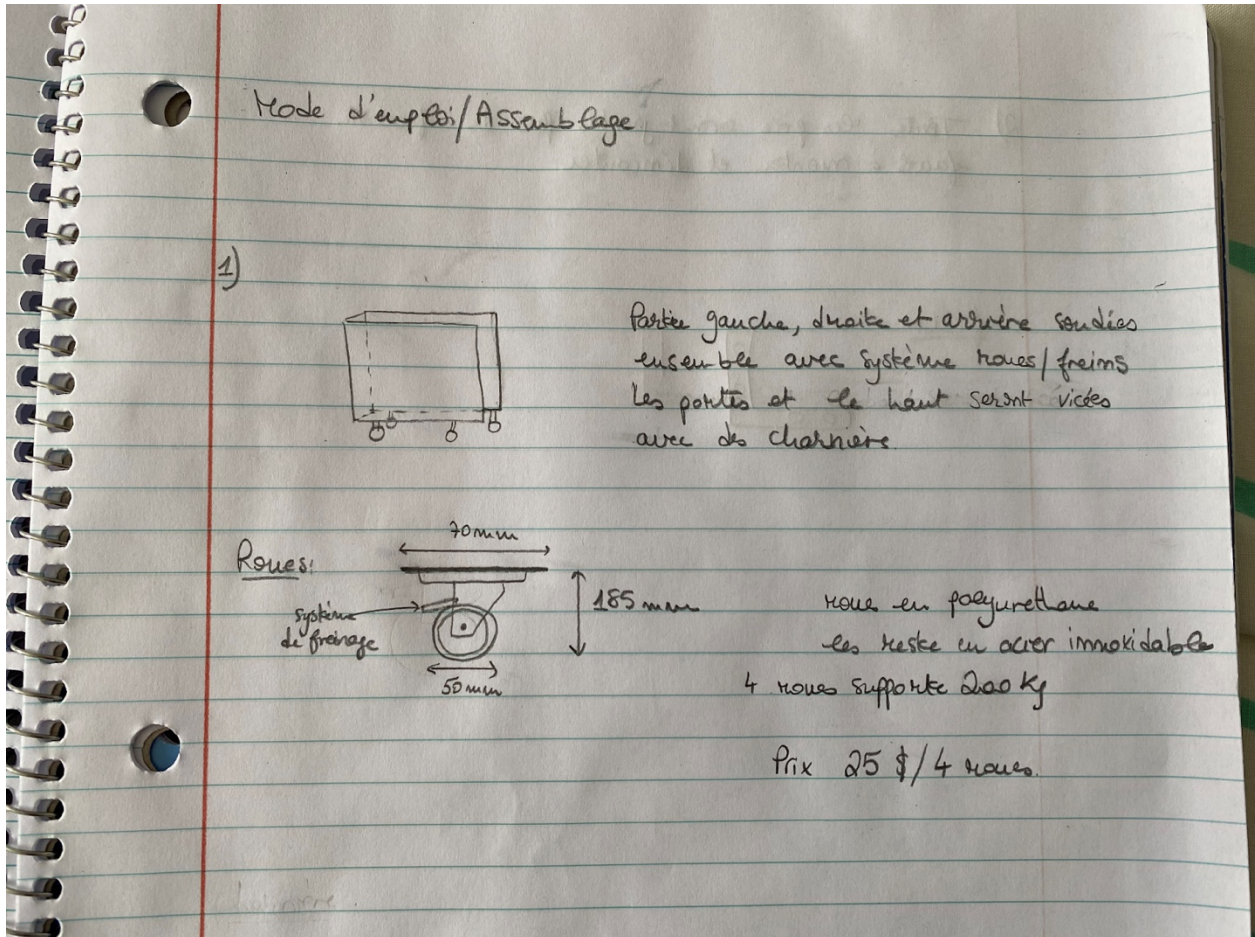 Mode d'emploi/Assemblage
1)
Partie gauche, droite et arrière soudées
ensemble avec système roues/freins
Les portes et le haut seront vicées
avec des charnière
Roues:
70mm
système
de freinage
185 mm
50 mm
roue en polyurethane
les reste en acier innoxidable
4 roues supporte 200 Kg
Prix 25 $/4 roues.